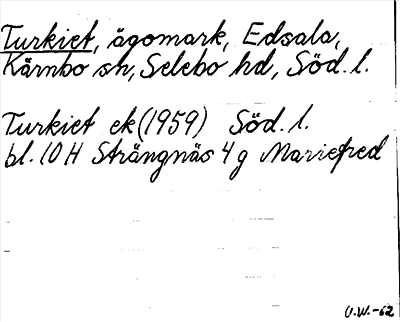 Turkiet, ägomark, Edsala,
Kärnbo sn, Selebo hd, Söd. l.
Turkiet ek (1959) Söd. l.
bl. 10 H Strängnäs 4 g Mariefred
U.W.-62